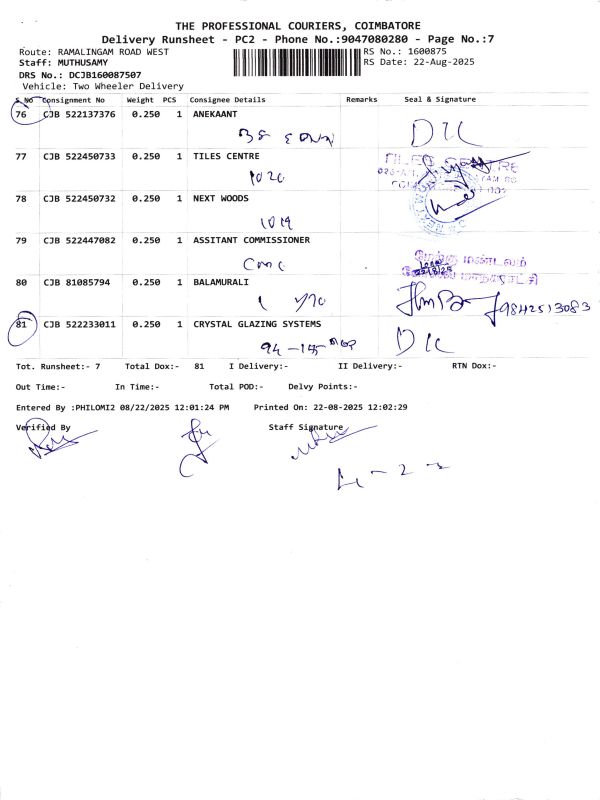 THE PROFESSIONAL COURIERS, COIMBATORE
Delivery Runsheet - PC2 - Phone No.:9047080280 - Page No.:7
Route: RAMALINGAM ROAD WEST RS No.: 1600875
Staff: MUTHUSAMY RS Date: 22-Aug-2025
DRS No.: DCJB160087507
Vehicle: Two Wheeler Delivery
S.No Consignment No Weight PCS Consignee Details Remarks Seal & Signature
76 CJB 522137376 0.250 1 ANEKAANT
D I C
77 CJB 522450733 0.250 1 TILES CENTRE
1020
TILES CENTRE
78 CJB 522450732 0.250 1 NEXT WOODS
1019
79 CJB 522447082 0.250 1 ASSITANT COMMISSIONER
CMC
மேற்கு மண்டலம்
80 CJB 81085794 0.250 1 BALAMURALI
9842513083
81 CJB 522233011 0.250 1 CRYSTAL GLAZING SYSTEMS
94-145
D I C
Tot. Runsheet:- 7 Total Dox:- 81 I Delivery:- II Delivery:- RTN Dox:-
Out Time:- In Time:- Total POD:- Delvy Points:-
Entered By :PHILOMI2 08/22/2025 12:01:24 PM Printed On: 22-08-2025 12:02:29
Verified By Staff Signature